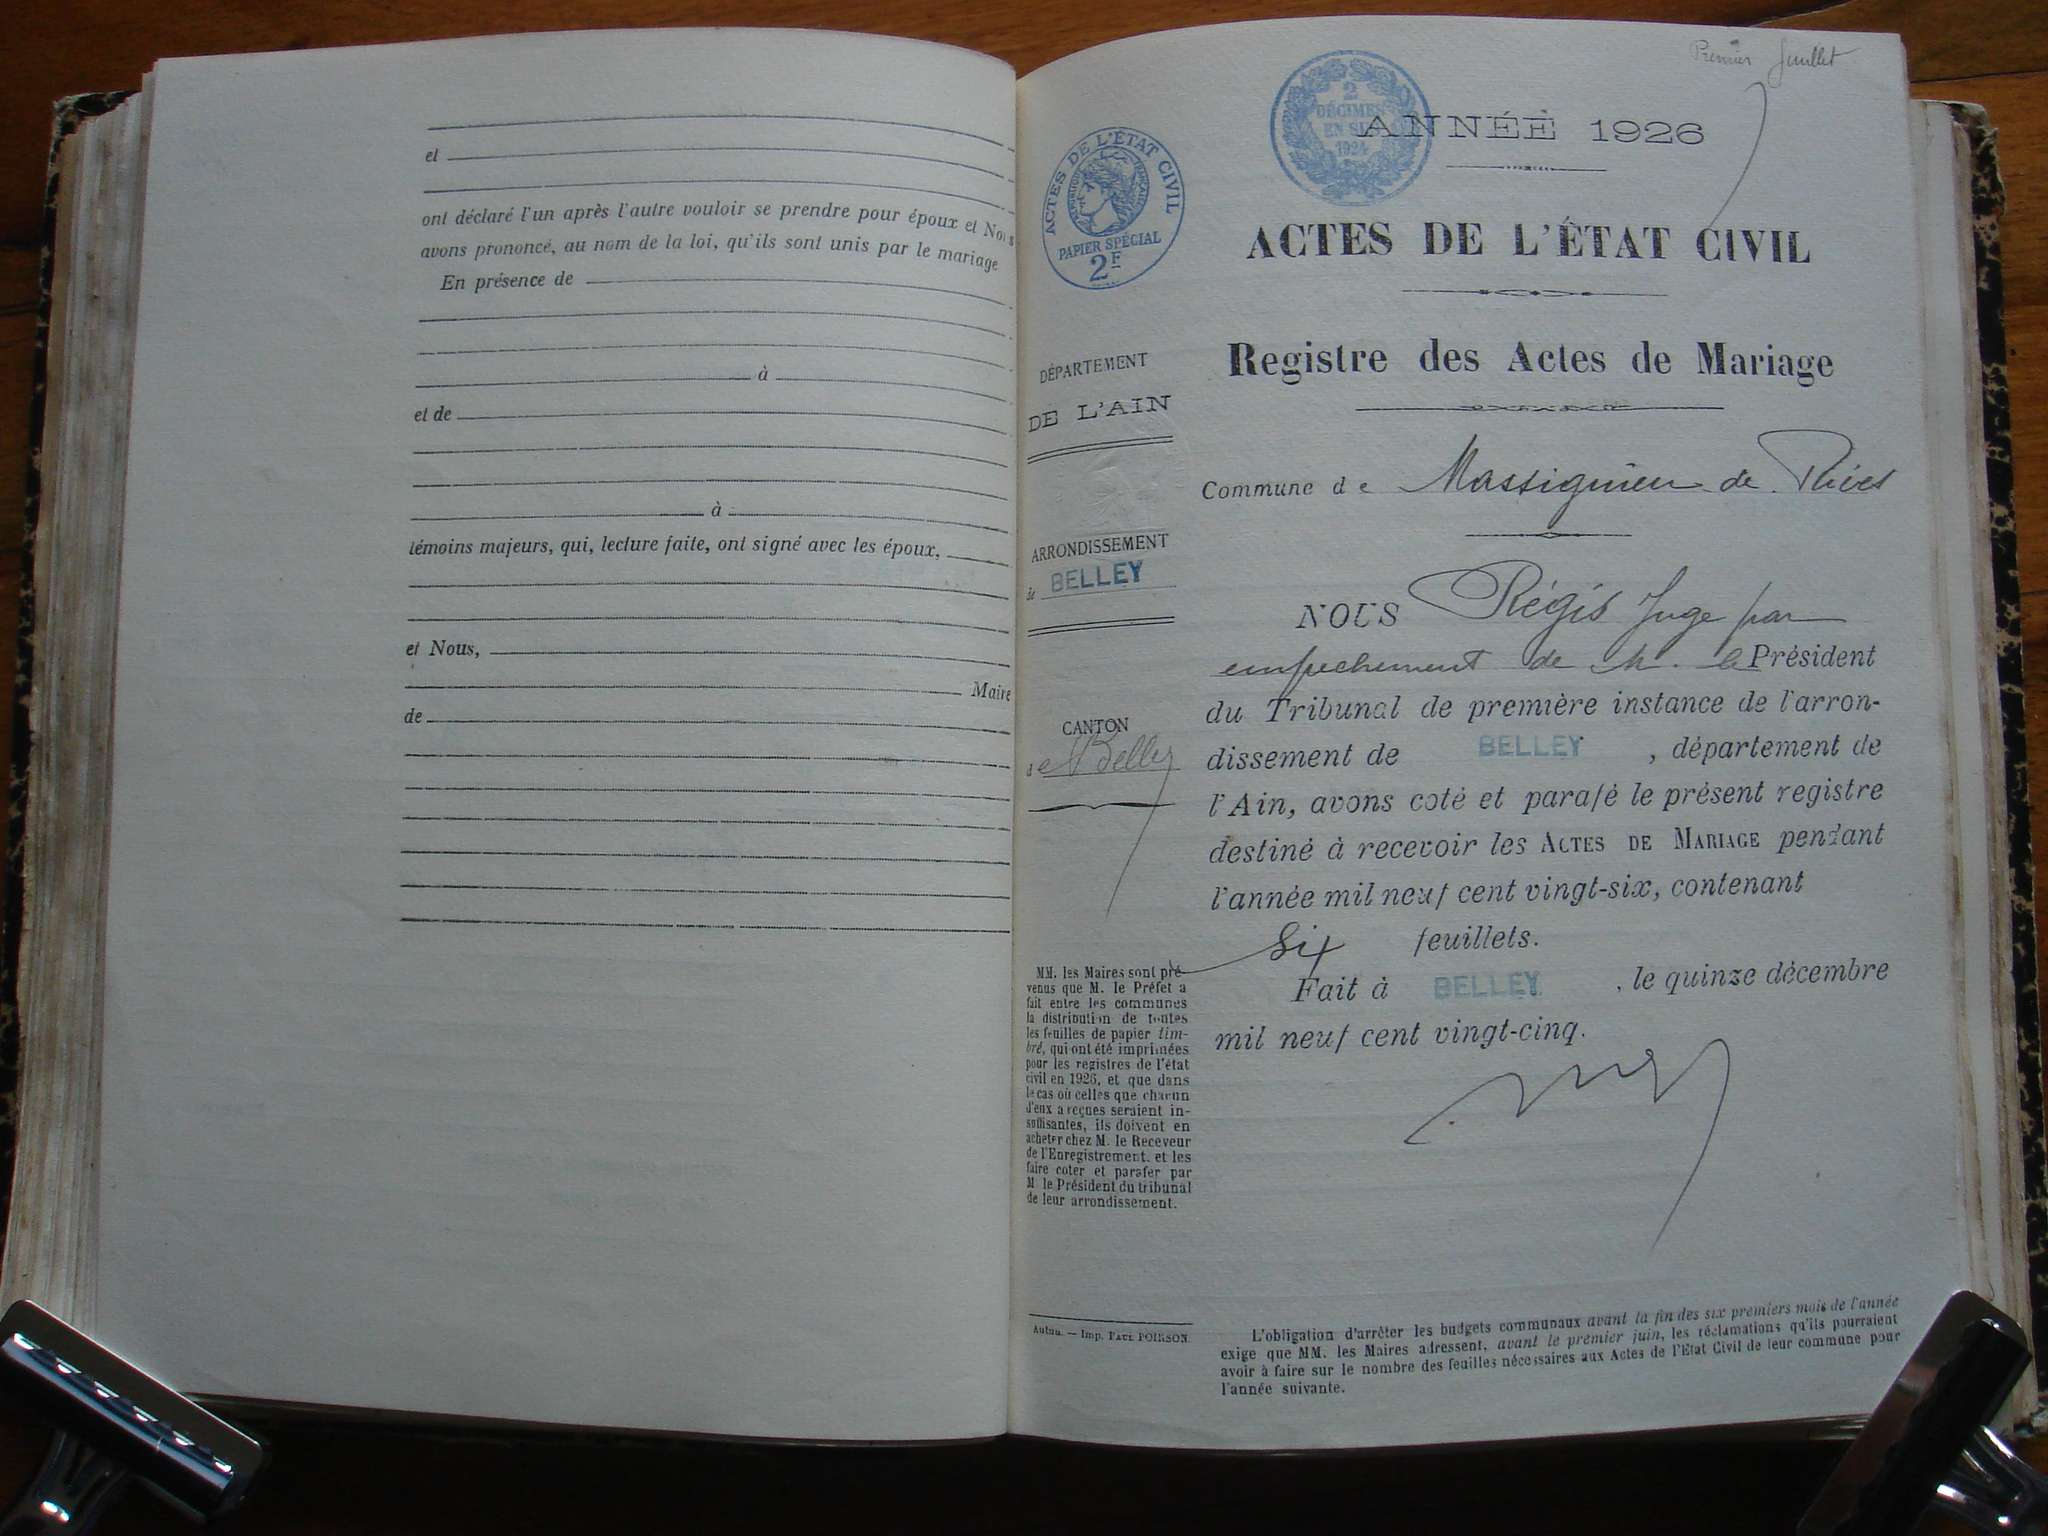 et
ont déclaré l'un après l'autre vouloir se prendre pour époux et Nous
avons prononcé, au nom de la loi, qu'ils sont unis par le mariage
En présence de
à
et de
à
témoins majeurs, qui, lecture faite, ont signé avec les époux,
et Nous,
Maire
de
Premier feuillet
2
DÉCIMES
EN SUS
1924
ANNÉE 1926
ACTES DE L'ÉTAT CIVIL
RÉPUBLIQUE FRANÇAISE
PAPIER SPÉCIAL
2F
ACTES DE L'ÉTAT CIVIL
Registre des Actes de Mariage
DÉPARTEMENT
DE L'AIN
Commune de Massignieu de Rives
ARRONDISSEMENT
de BELLEY
CANTON
de Belley
NOUS Régis Juge par
empechement de M. le Président
du Tribunal de première instance de l'arron-
dissement de BELLEY, département de
l'Ain, avons coté et parafé le présent registre
destiné à recevoir les ACTES DE MARIAGE pendant
l'année mil neuf cent vingt-six, contenant
Six feuillets.
Fait à BELLEY, le quinze décembre
mil neuf cent vingt-cinq.
MM. les Maires sont pré-
venus que M. le Préfet a
fait entre les communes
la distribution de toutes
les feuilles de papier tim-
bré, qui ont été imprimées
pour les registres de l'état
civil en 1926, et que dans
le cas où celles que chacun
d'eux a reçues seraient in-
suffisantes, ils doivent en
acheter chez M. le Receveur
de l'Enregistrement. et les
faire coter et parafer par
M le Président du tribunal
de leur arrondissement.
Autun. — Imp. PAUL POIRSON
L'obligation d'arrêter les budgets communaux avant la fin des six premiers mois de l'année
exige que MM. les Maires adressent, avant le premier juin, les réclamations qu'ils pourraient
avoir à faire sur le nombre des feuilles nécessaires aux Actes de l'Etat Civil de leur commune pour
l'année suivante.